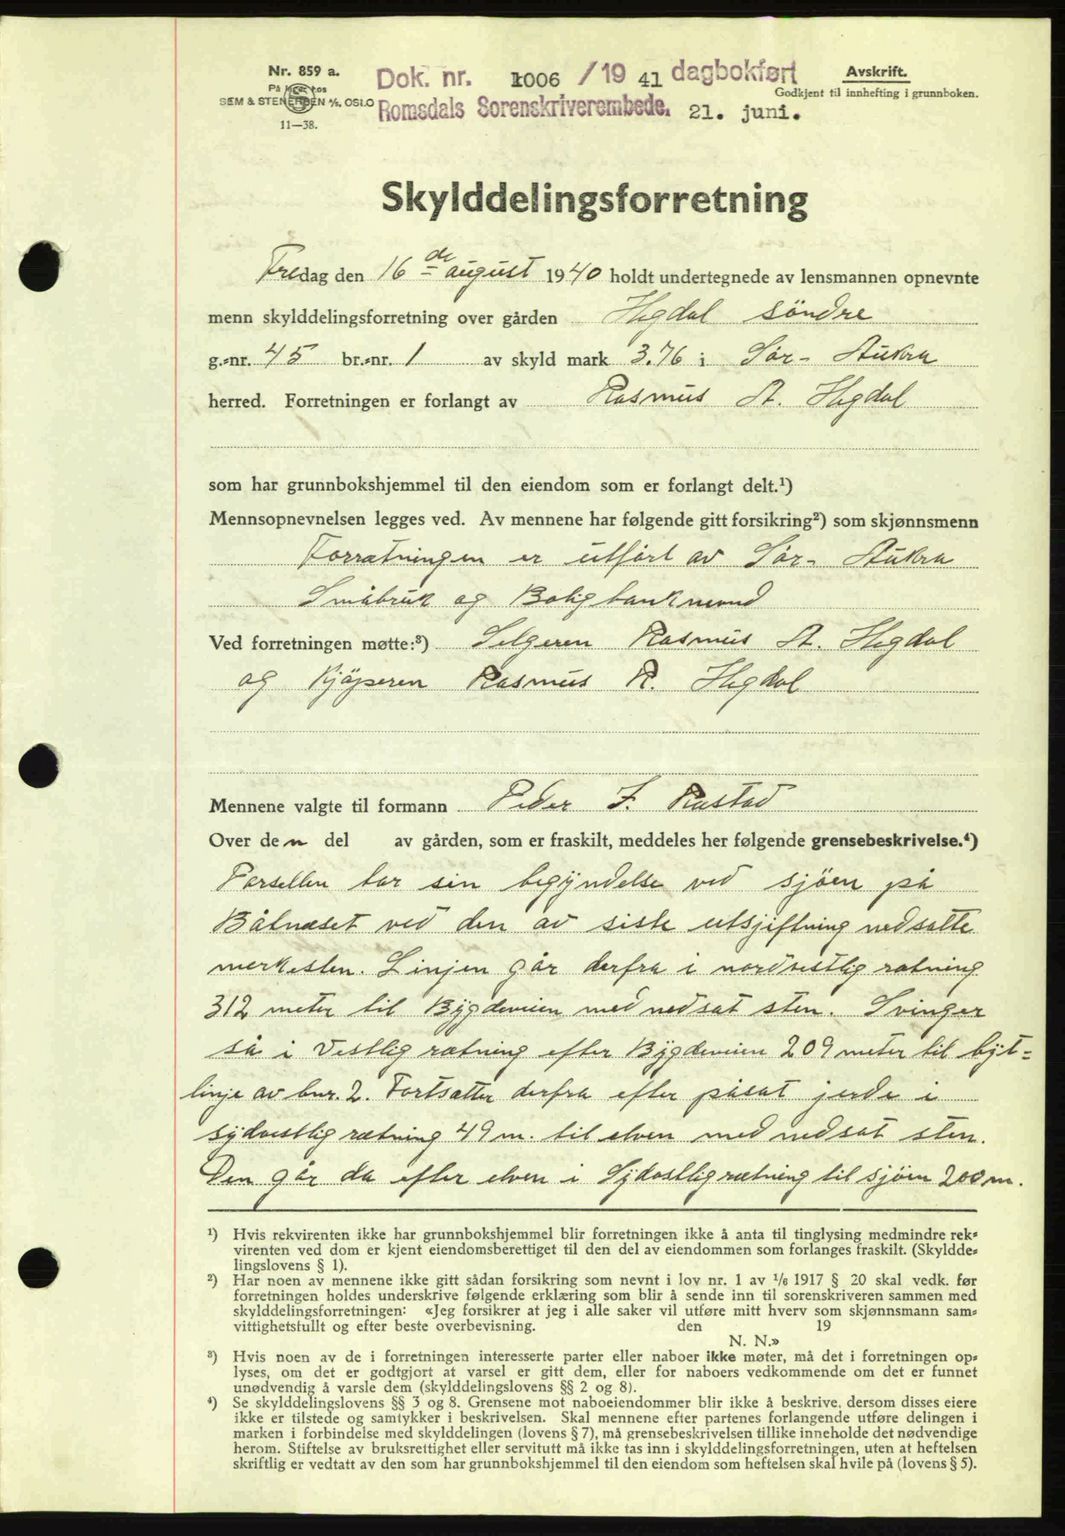 Nr. 859 a.
På lager hos
SEM & STENERSEN A/S, OSLO
11—38.
Dok. nr. 1006 /19 41 dagbokført
Romsdals Sorenskriverembede. 21. juni.
Avskrift.
Godkjent til innhefting i grunnboken.
Skylddelingsforretning
Fredag den 16 de august 1940 holdt undertegnede av lensmannen opnevnte
menn skylddelingsforretning over gården Hegdal söndre
g.-nr. 45 br.-nr. 1 av skyld mark 3.76 i Sør-Aukra
herred. Forretningen er forlangt av Rasmus A. Hegdal
som har grunnbokshjemmel til den eiendom som er forlangt delt.¹)
Mennsopnevnelsen legges ved. Av mennene har følgende gitt forsikring²) som skjønnsmenn
Forrætningen er utført av Sør-Aukra
Småbruk og Boligbanknevnd
Ved forretningen møtte:³) Selgeren Rasmus A. Hegdal
og Kjöperen Rasmus R. Hegdal
Mennene valgte til formann Peder J. Rastad
Over den del av gården, som er fraskilt, meddeles her følgende grensebeskrivelse.⁴)
Parsellen tar sin begÿndelse ved sjöen på
Båtneset ved den av siste utsjiftning nedsatte
merkesten. Linjen går derfra i nordvestlig rætning
312 meter til Bÿgdeveien med nedsat sten. Svinger
så i vestlig rætning efter Bÿgdeveien 209 meter til bÿt=
linje av bnr. 2. Fortsætter derfra efter påsat jerde i
sÿdvestlig rætning 49 m. til elven med nedsat sten.
Den går da efter elven i Sÿdostlig rætning til sjöen 200 m.
¹) Hvis rekvirenten ikke har grunnbokshjemmel blir forretningen ikke å anta til tinglysing medmindre rek-
virenten ved dom er kjent eiendomsberettiget til den del av eiendommen som forlanges fraskilt. (Skyldde-
lingslovens § 1).
²) Har noen av mennene ikke gitt sådan forsikring som nevnt i lov nr. 1 av 1/6 1917 § 20 skal vedk. før
forretningen holdes underskrive følgende erklæring som blir å sende inn til sorenskriveren sammen med
skylddelingsforretningen: «Jeg forsikrer at jeg i alle saker vil utføre mitt hverv som skjønnsmann sam-
vittighetsfullt og efter beste overbevisning. den 19
N. N.»
³) Hvis noen av de i forretningen interesserte parter eller naboer ikke møter, må det i forretningen op-
lyses, om det er godtgjort at varsel er gitt dem, eller for naboers vedkommende om det er funnet
unødvendig å varsle dem (skylddelingslovens §§ 2 og 8).
⁴) Se skylddelingslovens §§ 3 og 8. Grensene mot naboeiendommer blir ikke å beskrive, dersom disses eiere
ikke er tilstede og samtykker i beskrivelsen. Skal mennene efter partenes forlangende utføre delingen i
marken i forbindelse med skylddelingen (lovens § 7), må grensebeskrivelsen tillike inneholde det nødvendige
herom. Stiftelse av bruksrettighet eller servitutt må ikke tas inn i skylddelingsforretningen, uten at heftelsen
skriftlig er vedtatt av den som har grunnbokshjemmel til den eiendom som heftelsen skal hvile på (lovens § 5).